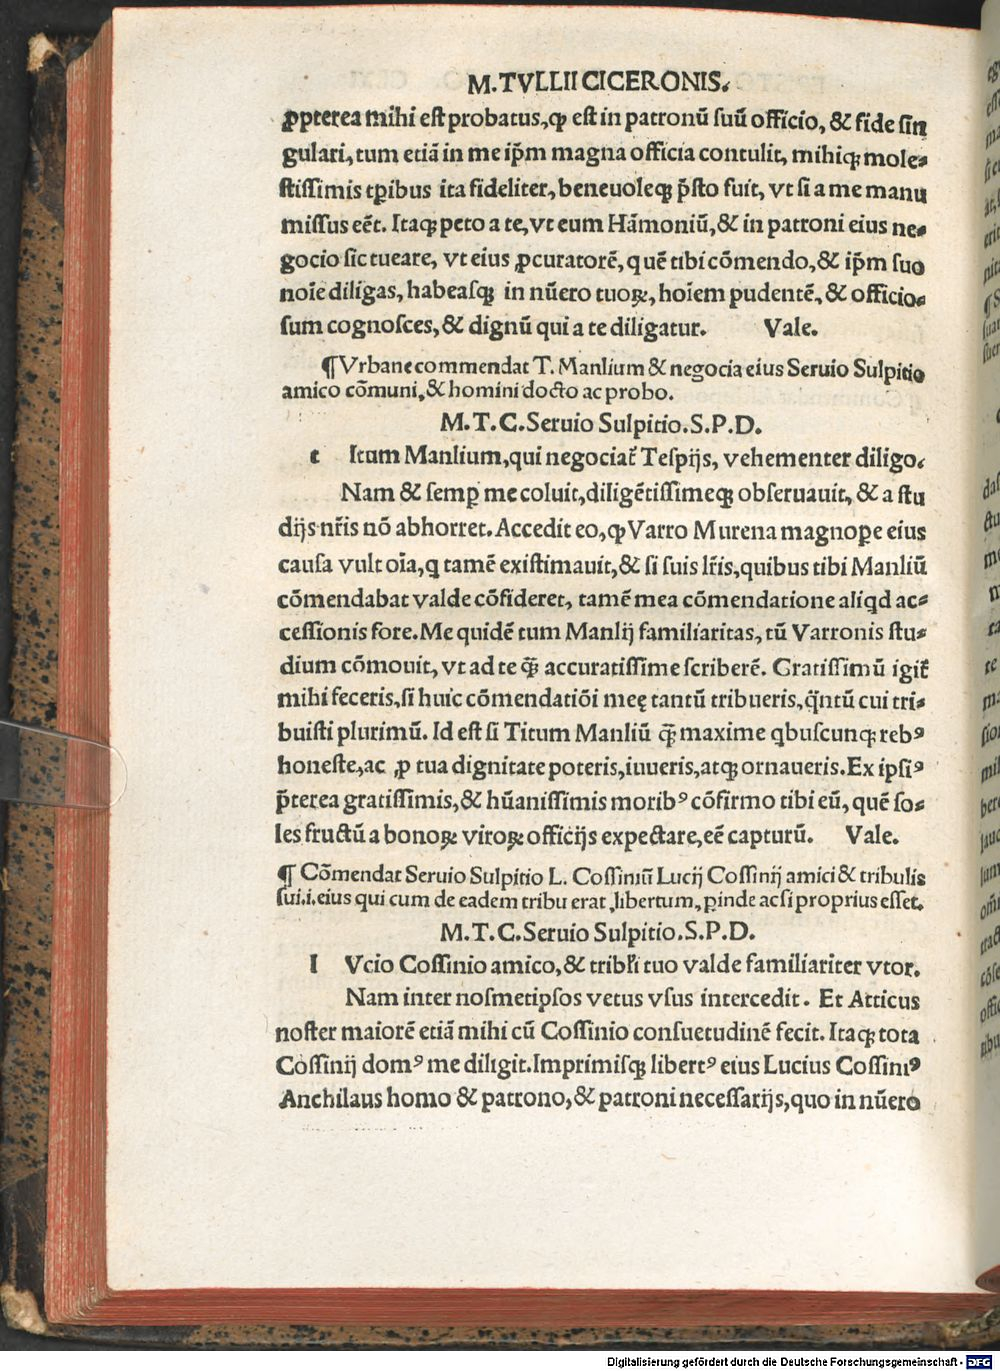 M.TVLLII CICERONIS.
ꝓpterea mihi est probatus, ꝙ est in patronū suū officio, & fide sin
gulari, tum etiā in me ip̄m magna officia contulit, mihiqꝫ mole-
stissimis tꝑibus ita fideliter, beneuoleqꝫ p̄sto fuit, vt si a me manu
missus eēt. Itaqꝫ peto a te, vt eum Hāmoniū, & in patroni eius ne-
gocio sic tueare, vt eius ꝓcuratorē, quē tibi cōmendo, & ip̄m suo
noīe diligas, habeasqꝫ in nūero tuoꝝ, hoīem pudentē, & officio-
sum cognosces, & dignū qui a te diligatur. Vale.
¶ Vrbane commendat T. Manlium & negocia eius Seruio Sulpitio
amico cōmuni, & homini docto ac probo.
M.T.C. Seruio Sulpitio. S.P.D.
t Itum Manlium, qui negociat̄ Tespijs, vehementer diligo.
Nam & semꝑ me coluit, diligētissimeqꝫ obseruauit, & a stu
dijs nr̄is nō abhorret. Accedit eo, ꝙ Varro Murena magnoꝑe eius
causa vult oīa, q tamē existimauit, & si suis lr̄is, quibus tibi Manliū
cōmendabat valde cōfideret, tamē mea cōmendatione aliqd ac-
cessionis fore. Me quidē tum Manlij familiaritas, tū Varronis stu-
dium cōmouit, vt ad te q̄ꝫ accuratissime scriberē. Gratissimū igit̄
mihi feceris, si huic cōmendatiōi meę tantū tribueris, q̄ntū cui tri-
buisti plurimū. Id est si Titum Manliū q̄ꝫ maxime qbuscunqꝫ rebꝰ
honeste, ac ꝓ tua dignitate poteris, iuueris, atqꝫ ornaueris. Ex ipsiꝰ
p̄terea gratissimis, & hūanissimis moribꝰ cōfirmo tibi eū, quē so-
les fructū a bonoꝝ viroꝝ officijs expectare, eē capturū. Vale.
¶ Cōmendat Seruio Sulpitio L. Cossiniū Lucij Cossinij amici & tribulis
sui .i. eius qui cum de eadem tribu erat, libertum, ꝑinde ac si proprius esset.
M.T.C. Seruio Sulpitio. S.P.D.
l Vcio Cossinio amico, & tribłi tuo valde familiariter vtor.
Nam inter nosmetipsos vetus vsus intercedit. Et Atticus
noster maiorē etiā mihi cū Cossinio consuetudinē fecit. Itaqꝫ tota
Cossinij domꝰ me diligit. Imprimisqꝫ libertꝰ eius Lucius Cossiniꝰ
Anchilaus homo & patrono, & patroni necessarijs, quo in nūero
Digitalisierung gefördert durch die Deutsche Forschungsgemeinschaft - DFG